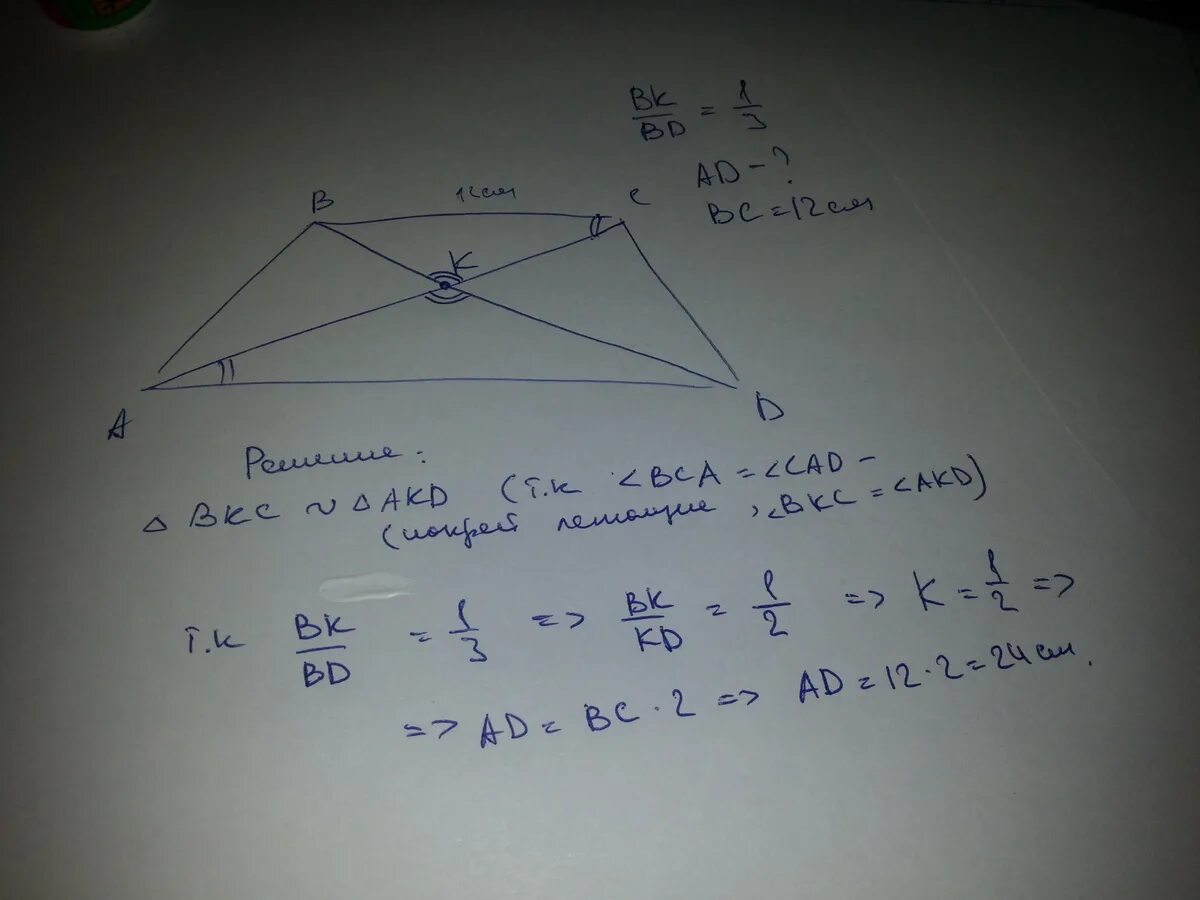 BK/BD = 1/3
AD - ?
BC = 12 см
B 12 см C
K
A D
Решение:
△ BKC ~ △ AKD (т.к <BCA = <CAD -
(накрест лежащие, <BKC = <AKD)
т.к BK/BD = 1/3 => BK/KD = 1/2 => K = 1/2 =>
=> AD = BC · 2 => AD = 12 · 2 = 24 см.